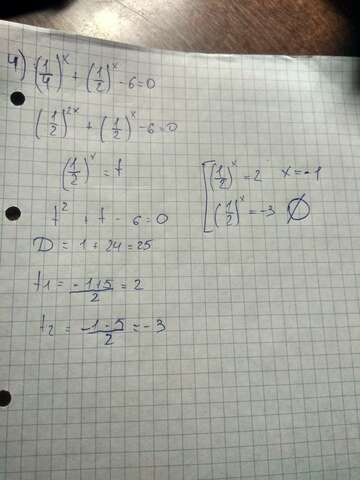 4) (1/4)^x + (1/2)^x - 6 = 0
(1/2)^2x + (1/2)^x - 6 = 0
(1/2)^x = t
t^2 + t - 6 = 0
D = 1 + 24 = 25
t1 = -1+5/2 = 2
t2 = -1-5/2 = -3
[(1/2)^x = 2 x = -1
(1/2)^x = -3 ∅